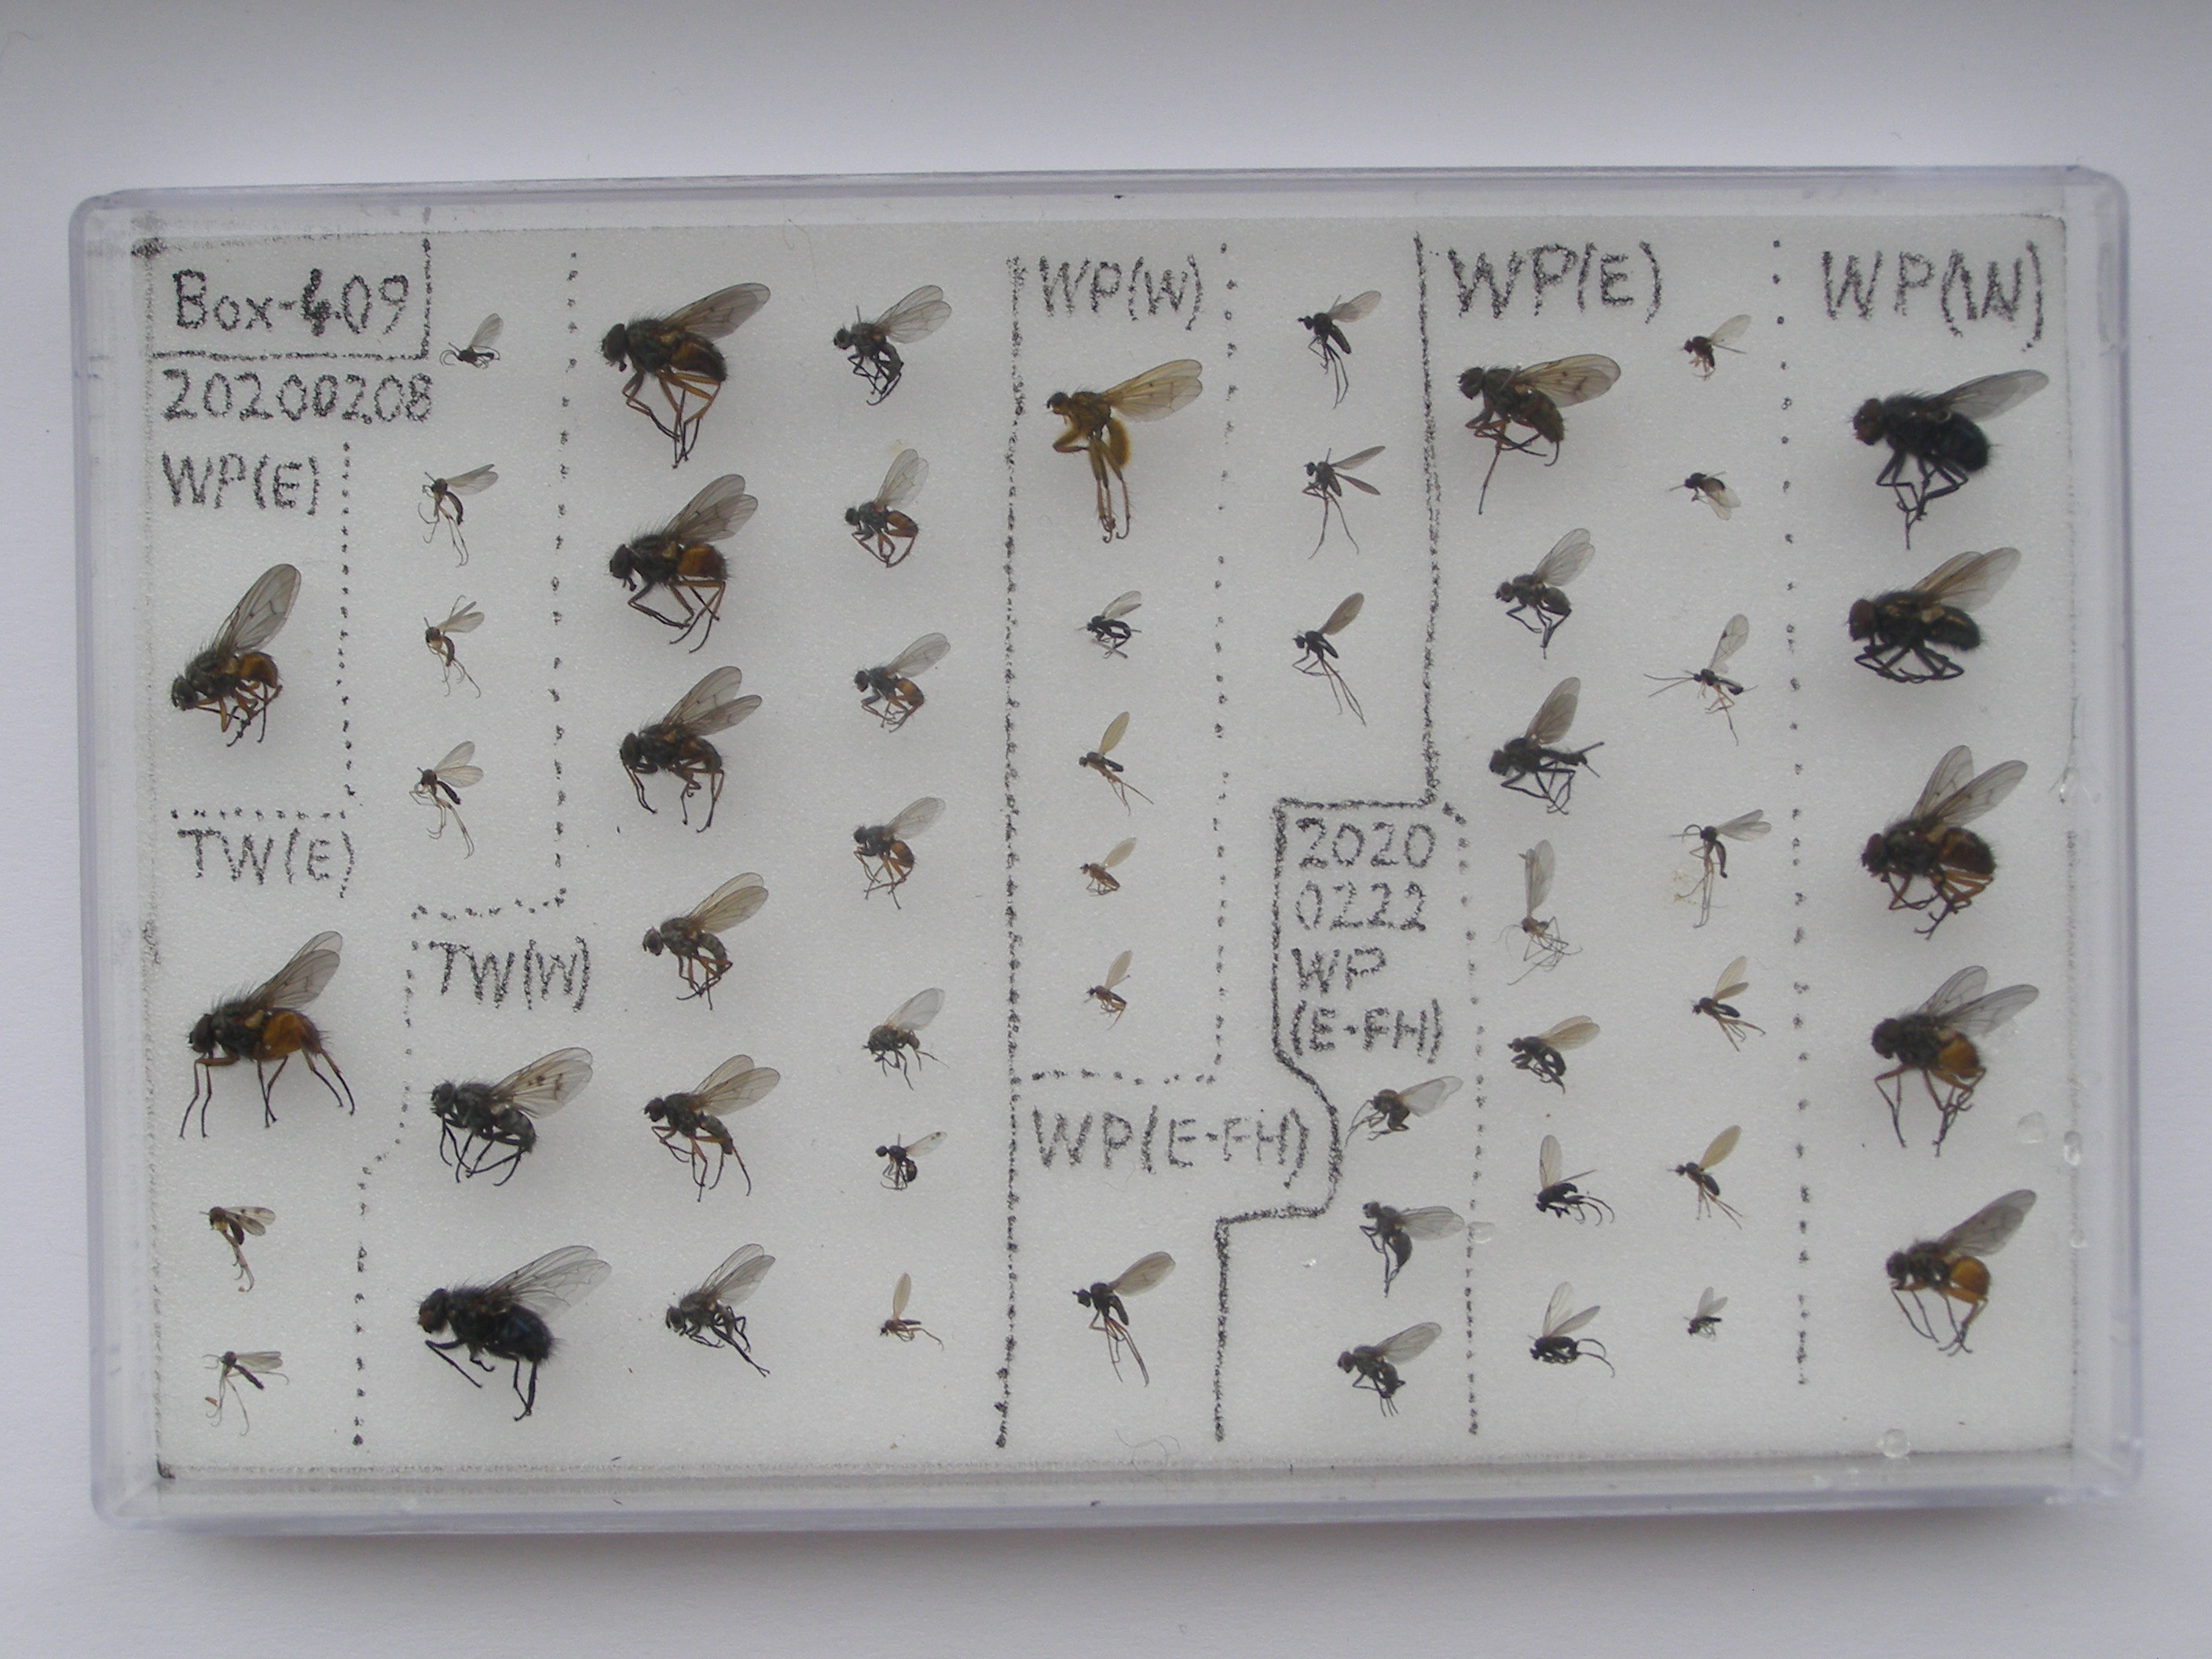 Box-409
20200208
WP(E)
TW(E)
TW(W)
WP(W)
WP(E-FH)
2020
0222
WP
(E-FH)
WP(E)
WP(W)